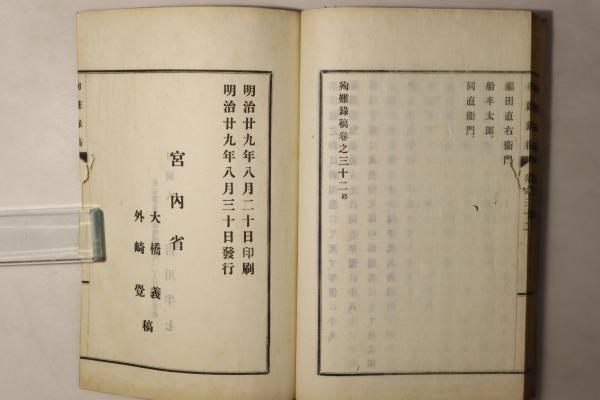 福田直右衞門。
船卒太郎。
同直衞門。
殉難錄稿卷之三十二終
明治廿九年八月二十日印刷
明治廿九年八月三十日發行
宮內省
大橋義
外崎覺
稿